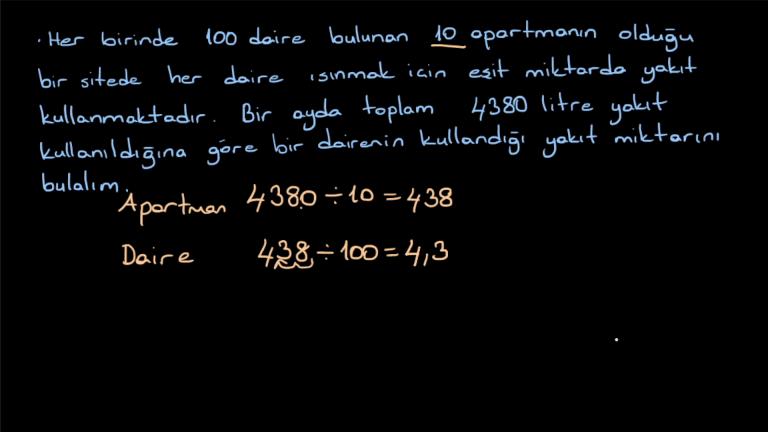 · Her birinde 100 daire bulunan 10 apartmanın olduğu
bir sitede her daire ısınmak icin eşit miktarda yakıt
kullanmaktadır. Bir ayda toplam 4380 litre yakıt
kullanıldığına göre bir dairenin kullandığı yakıt miktarını
bulalım.
Apartman 4380 ÷ 10 = 438
Daire 438 ÷ 100 = 4,3